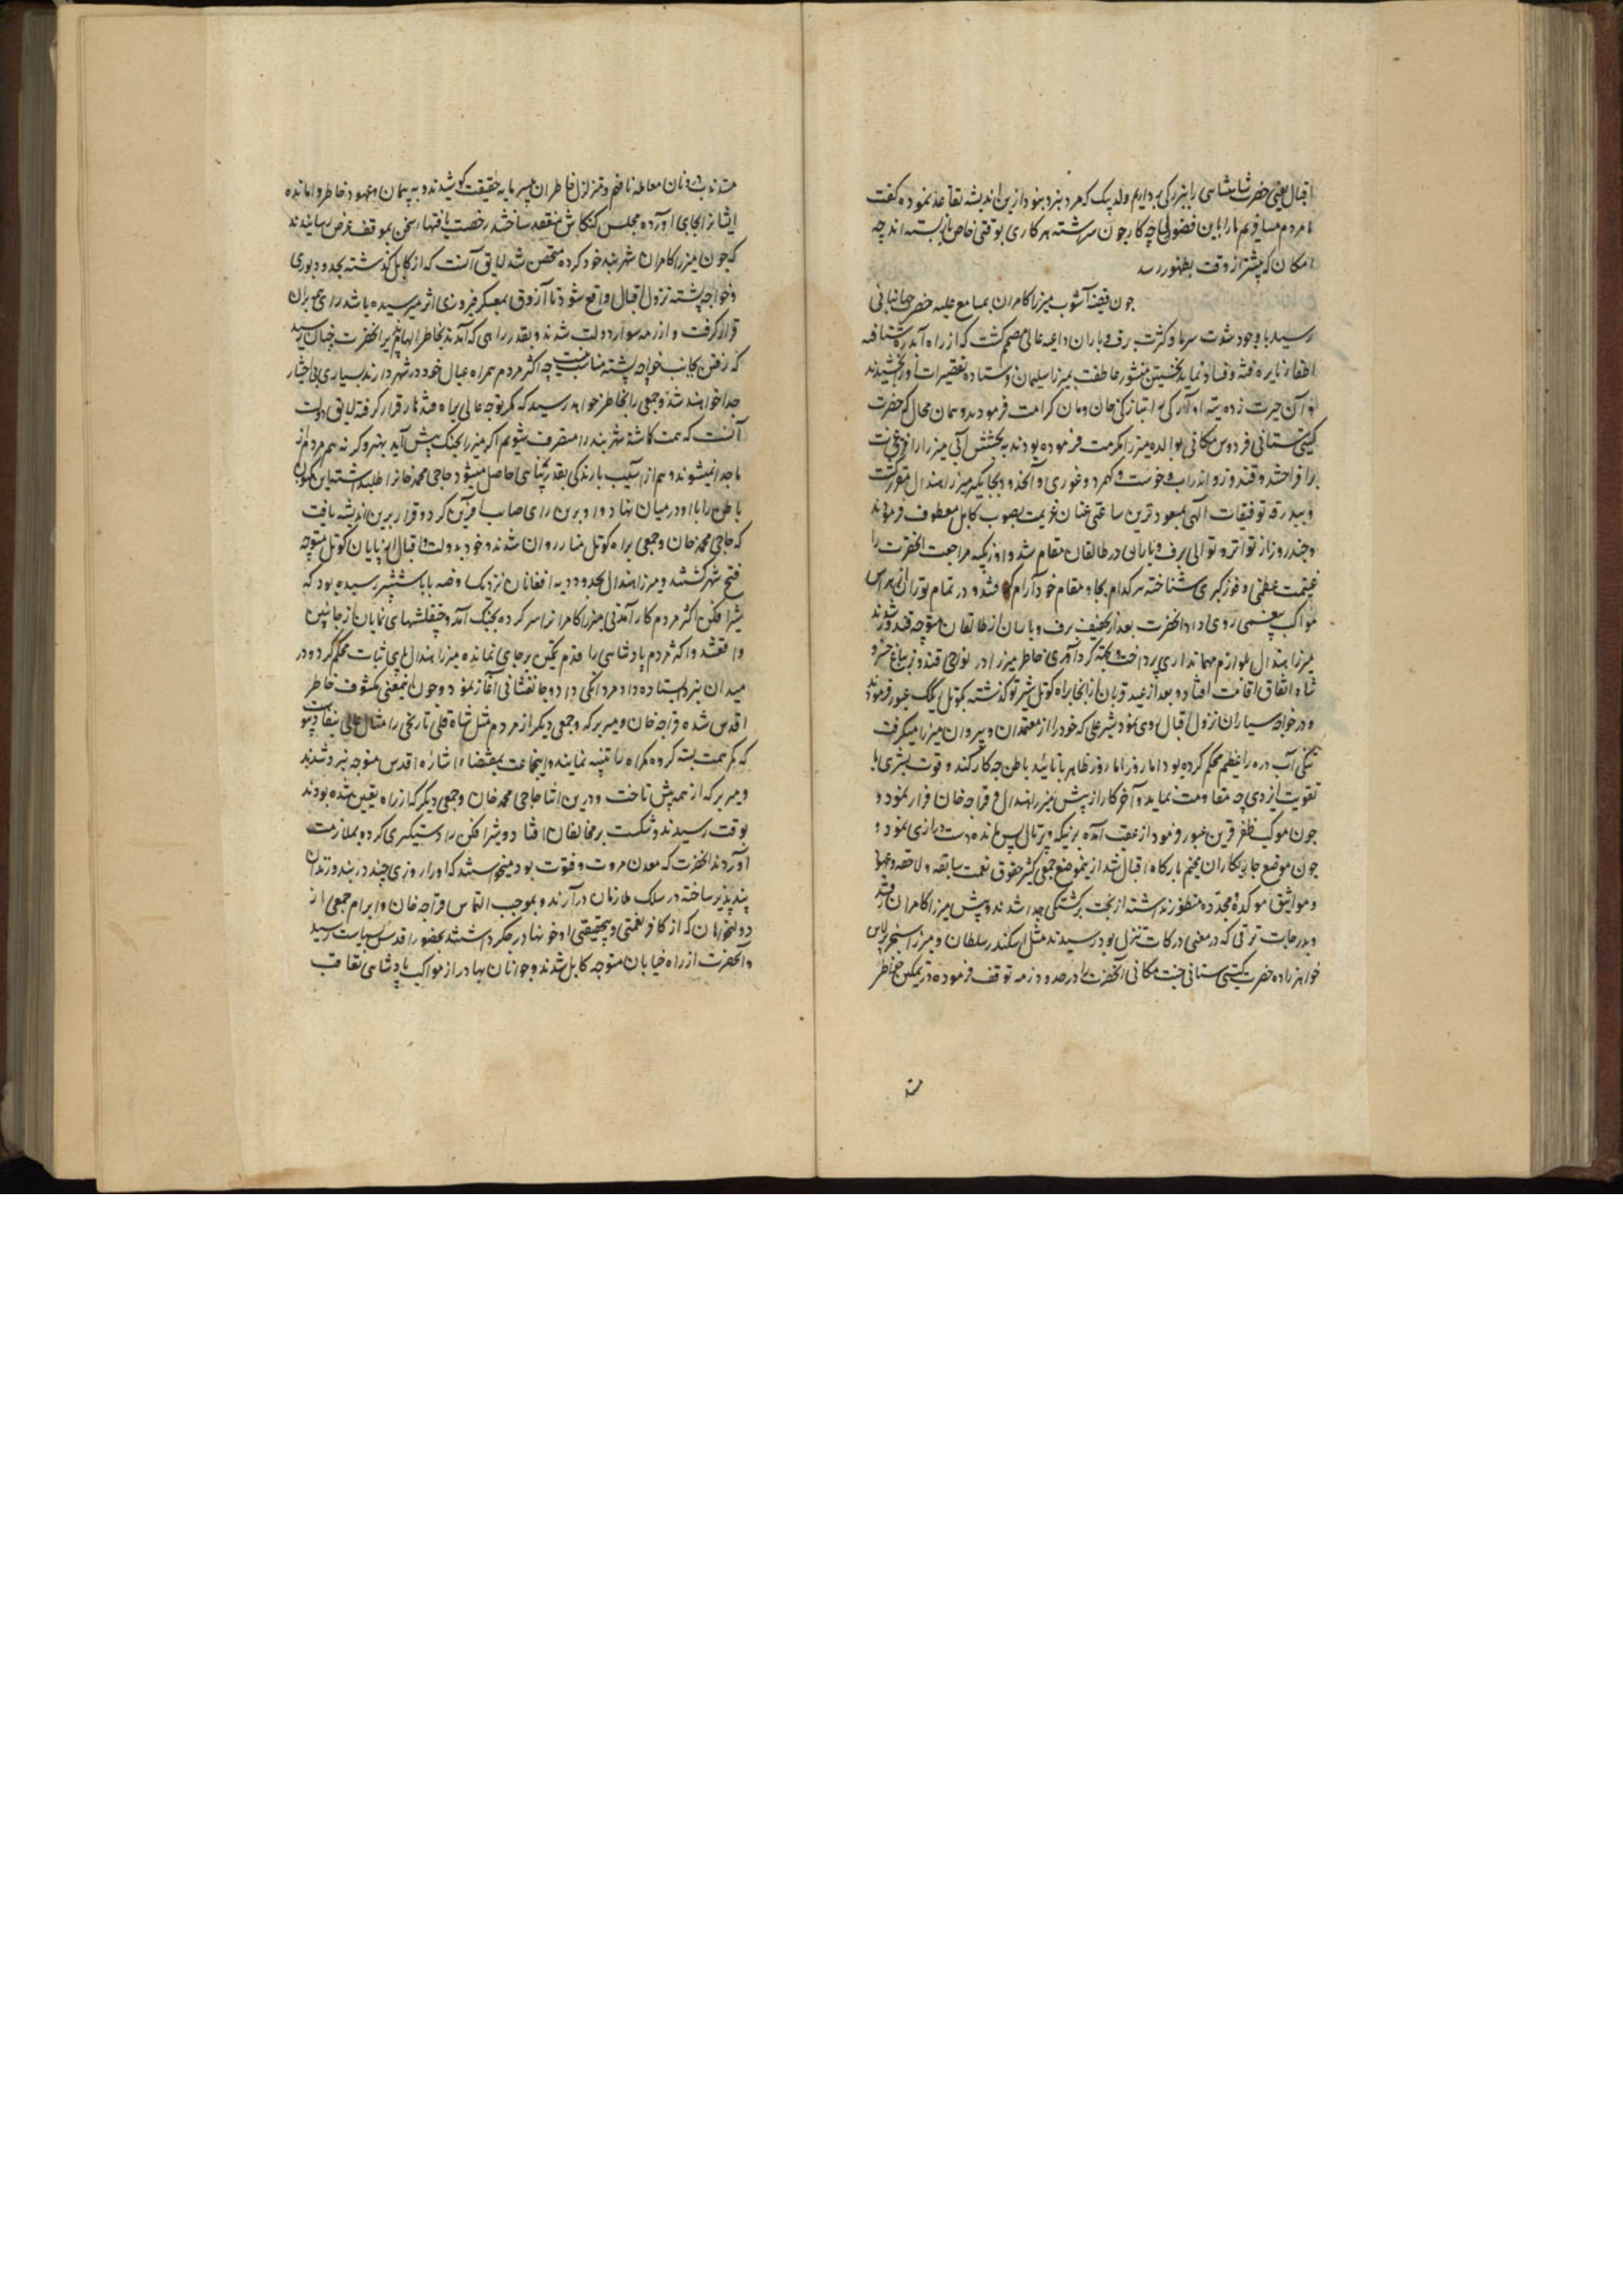 اقبال یعنی حضرت شاهنشاهی را بزرگی برداریم ولد بیک که مرد بزرد بنود ازین اندیشه تقاعد نموده گفت
ما مردم مسافریم ما را باین فضولیها چه کار چون سررشته هر کاری بوقتی خاص باز بسته اند چه
امکان که پیشتر از وقت بظهور رسد
چون قضیه آشوب میرزا کامران بمسامع علیه حضرت جهانبانی
رسید با وجود شدت سرما و کثرت برف و باران داعیه عالی مصمم گشت که از راه آبدره شتافته
اطفاء نایره فتنه و فساد نمایند نخستین منشور عاطفت بمیرزا سلیمان فرستاده تقصیرات او را بخشیدند
و آن حیرت زده تیه آوارگی را بتازگی خان و مان کرامت فرمودند و همان محال که حضرت
گیتی ستانی فردوس مکانی بوالده میرزا مکرمت فرموده بودند به بخشش آن میرزا را از
برافراختند و قندوز و اندراب و خوست و کهمرد و غوری و آنحدود بجایگیر میرزا هندال مقرر گشت
و ببدرقه توفیقات الهی بمسعودترین ساعتی عنان عزیمت بصوب کابل معطوف فرمودند
و چند روز از تواتر و توالی برف و باران در طالقان مقام شد و اوزبکیه مراجعت آنحضرت را
غنیمت عظمی و فوز کبری شناخته هر کدام بجا و مقام خود آرام گرفتند و در تمام توران از هراس
مواکب روی داد آنحضرت بعد از تخفیف برف و باران از طالقان متوجه قندوز شدند
میرزا هندال لوازم مهمانداری پرداخت و بجهت گردآوری خاطر میرزا در نواحی قندوز بباغ خسرو
شاه اتفاق اقامت افتاد و بعد از عید قربان از انجا براه کوتل شبرتو گذشته بکوتل ریگک عبور فرمودند
و در خواجه سیاران نزول اقبال روی نمود شیر علی که خود را از معتمدان و پیروان میرزا میگرفت
تنگی آب دره را عظیم محکم کرده بود اما روز ظاهر با تائید باطن چه کار کند و قوت بشری با
تقویت ایزدی چه مقاومت نماید و آخر کار از پیش میرزا هندال و قراجه خان فرار نمود و
چون موکب ظفر قرین عبور فرمود از عقب آمده بر بنه و پرتال پس مانده دست درازی نمود و
چون موضع چاریکاران مخیم بارگاه اقبال شد ازین موضع جمعی کثیر حقوق نعمت سابقه و لاحقه و عهود
و مواثیق مؤکده مجدده منظور نداشته از بخت برگشتگی جدا شدند و پیش میرزا کامران رفتند
و بدرجات ترقی که در معنی درکات تنزل بود رسیدند مثل اسکندر سلطان و میرزا سنجر برلاس
خواهرزاده حضرت گیتی ستانی جنت مکانی آنحضرت در حدود زمه توقف فرموده در تمکین خواطر
مت
متذبذب و نان معامله نافهم و تزلزل خاطران سرمایه حقیقت کوشیدند و به پیمان و عهود خاطر وامانده
ایشانرا بجای آورده مجلس کنکاش منعقد ساختند رخصت یافتها سخن بموقف عرض رسانیدند
که چون میرزا کامران شهر بند خود کرده متحصن شد لایق آنست که از کابل گذشته بحدود بوری
و خواجه پشته نزول اقبال واقع شود تا آزوق بمعسکر فیروزی اثر میرسیده باشد رای بران
قرار گرفت و از زمه سوار دولت شدند و بقدر راهی که آمدند بخاطر الهام پذیر آنحضرت چنان رسید
که رفتن بجانب خواجه پشته مناسب نیست چه اکثر مردم همراه عیال خود در شهر دارند بسیاری بی اختیار
جدا خواهند شد و جمعی را بخاطر خواهد رسید که مگر توجه عالی براه قندهار قرار گرفته لایق دولت
آنست که همت گماشته شهر بند را متصرف شویم اگر میرزا بجنگ پیش آید بهتر و گر نه هم مردم از
ما جدا نمیشوند و هم از آسیب بارندگی بقدر پناهی حاصل میشود حاجی محمد خانرا طلب داشته این مکنون
باطن را با او در میان نهاد و او برین رای صایب آفرین کرد و قرار برین اندیشه یافت
که حاجی محمد خان و جمعی براه کوتل منار روان شدند و خود بدولت و اقبال از پایان کوتل متوجه
فتح شهر گشتند و میرزا هندال بحدود دیه افغانان نزدیک روضه بابا ششپر رسیده بود که
شیر افکن اکثر مردم کار آمدنی میرزا کامرانرا سر کرده بجنگ آمد و چپقلشهای نمایان از جانبین
واقعشد و اکثر مردم پادشاهی را قدم تمکین بر جای نمانده میرزا هندال پای ثبات محکم کرد و در
میدان نبرد ایستاده داد مردانگی داد و جانفشانی آغاز نمود و چون اینمعنی مکشوف خاطر
اقدس شده قراجه خان و میر برکه و جمعی دیگر از مردم مثل شاه قلی نارنجی را مثال عالی بنفاذ پیوست
که کمر همت بسته گروه گمراه را تنبیه نمایند و اینجماعت بمقتضاء اشاره اقدس متوجه نبرد شدند
و میر برکه از همه پیش تاخت و درین اثنا حاجی محمد خان و جمعی دیگر که از راه تعین شده بودند
بوقت رسیدند و شکست بر مخالفان افتاد و شیر افکن را دستگیری کرده بملازمت
آوردند آنحضرت که معدن مروت و فتوت بود میخواستند که او را روزی چند در بند و زندان
پند پذیر ساخته در سلک ملازمان درآرند و بموجب التماس قراجه خان و ابرام جمعی از
دولتخواهان که از کافر نعمتی و بیحقیقتی او خونها در جگر داشتند بحضور اقدس بسیاست رسید
و آنحضرت از راه خیابان متوجه کابل شدند و جوانان بهادر از مواکب پادشاهی تعاقب